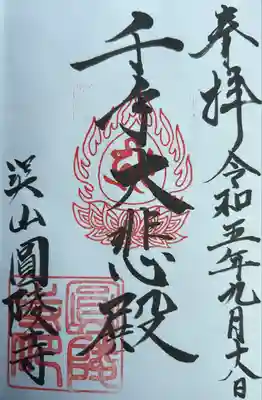 奉拝 令和五年九月十八日
千手大悲殿
山圓陵寺